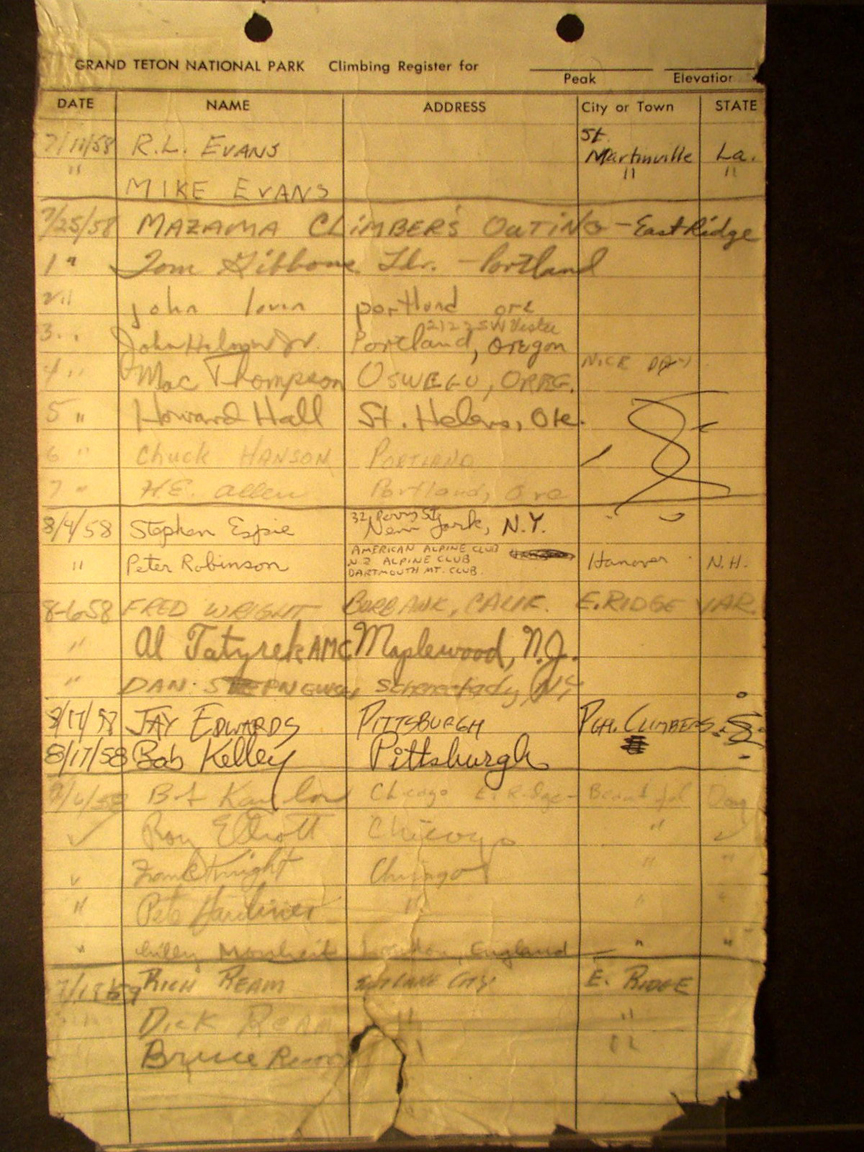 GRAND TETON NATIONAL PARK Climbing Register for
Peak Elevation
DATE NAME ADDRESS City or Town STATE
7/11/58 R.L. EVANS St. Martinville La.
" MIKE EVANS " "
7/25/58 MAZAMA CLIMBER'S OUTING - East Ridge
1 " Tom Gibbons Ldr. - Portland
2 " John portland ore
3 " John Jr. Portland, oregon
4 " Mac Thompson OSWEGO, OREG. NICE DAY
5 " Howard Hall St. Helens, Ore.
6 " Chuck HANSON PORTLAND
7 " H.E. Allen Portland, Ore
8/4/58 Stephen Espie 32 Perry St. New York, N.Y.
" Peter Robinson AMERICAN ALPINE CLUB Hanover N.H.
N.Z. ALPINE CLUB
DARTMOUTH MT. CLUB.
8-6-58 FRED WRIGHT BURBANK, CALIF. E. RIDGE VAR.
" Al Tatyrek AMC Maplewood, N.J.
" DAN Schenectady, NY
8/17/58 JAY EDWARDS PITTSBURGH PGH. CLIMBERS
8/17/58 Bob Kelley Pittsburgh
Chicago E. Ridge - Beautiful Day
Roy Elliott Chicago "
Frank Knight Chicago " "
" Pete Gardiner " " "
" London, England - " "
RICH REAM SALT LAKE CITY E. RIDGE
DICK REAM " "
Bruce Ream " "